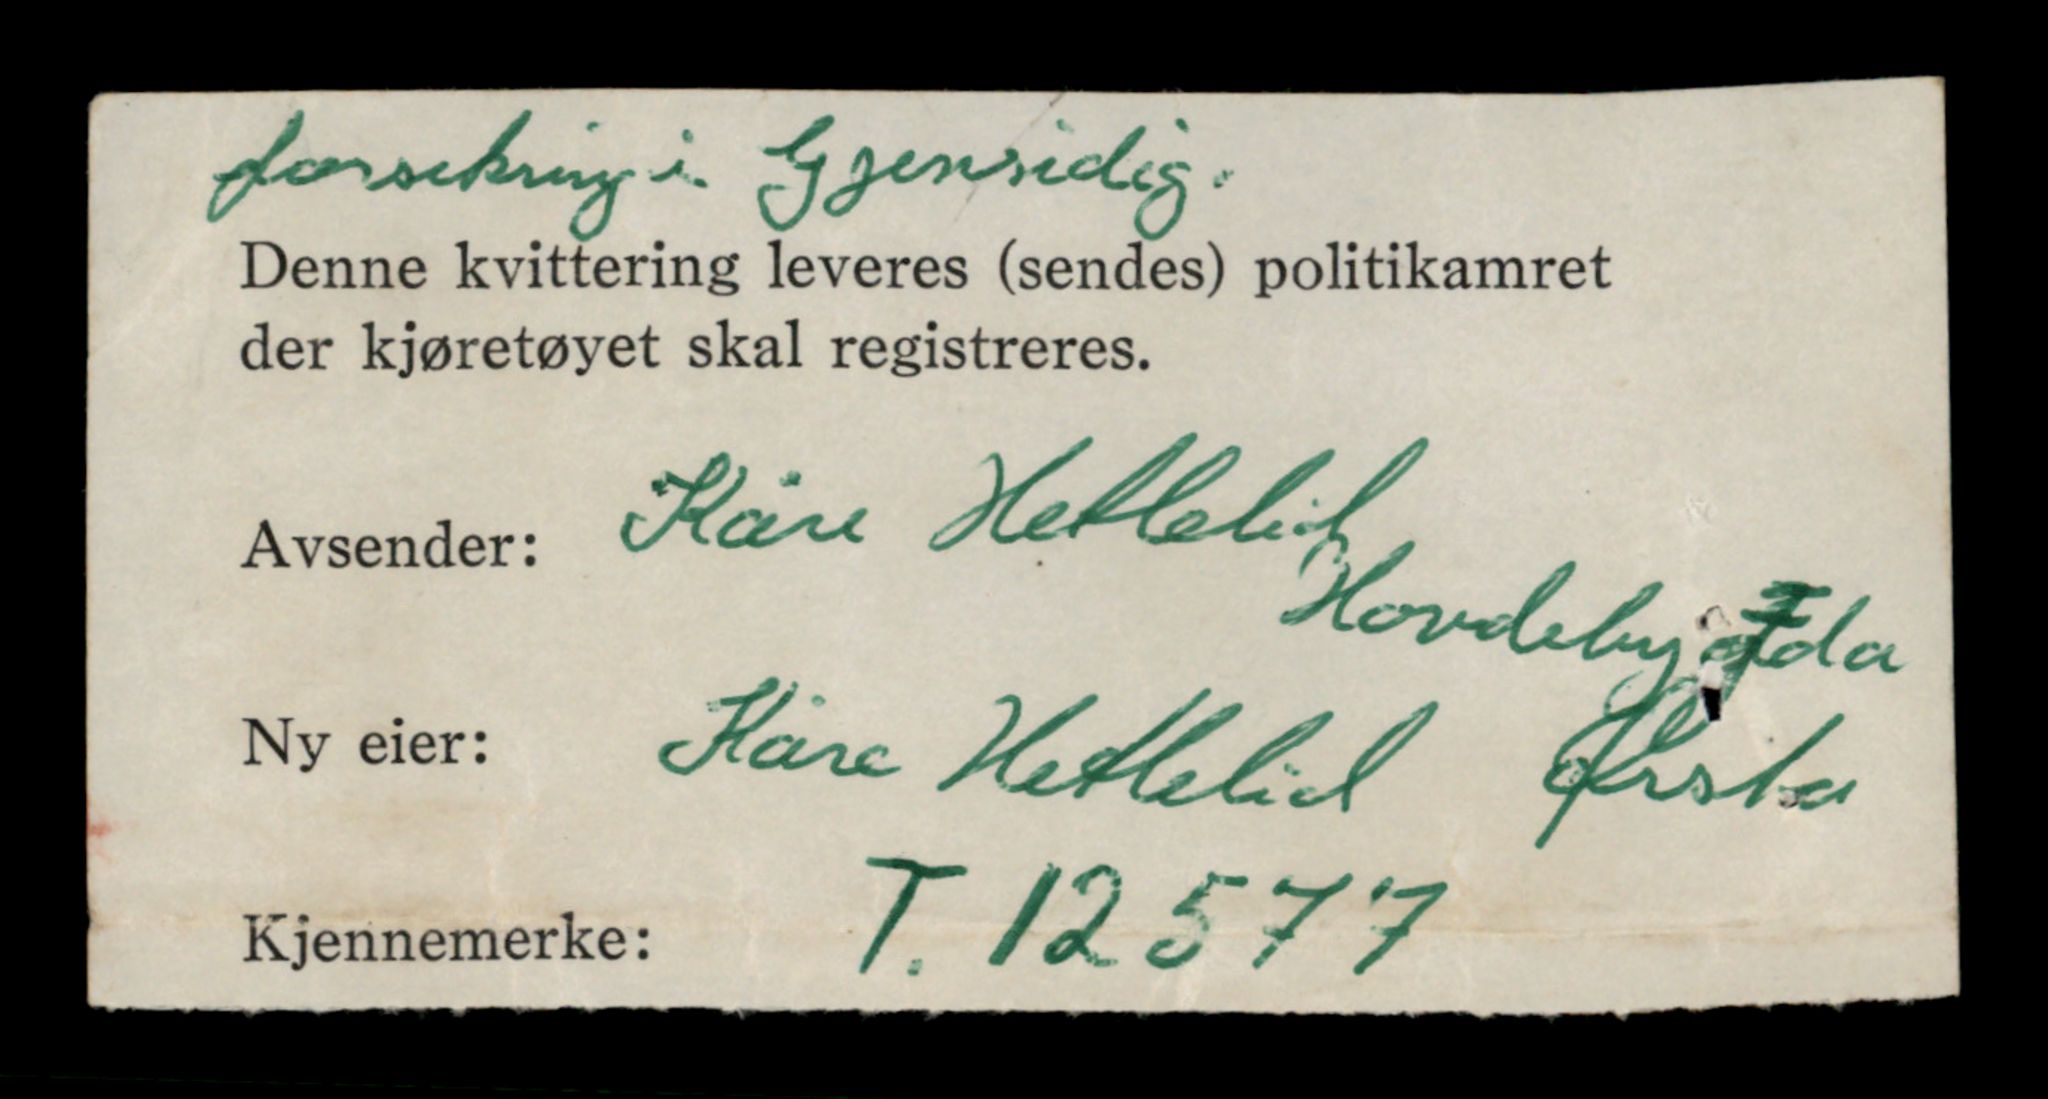 forsikring i Gjensidig.
Denne kvittering leveres (sendes) politikamret
der kjøretøyet skal registreres.
Avsender: Kåre Hettelid
Hovdebygda
Ny eier: Kåre Hettelid Ørsta
Kjennemerke: T. 12577